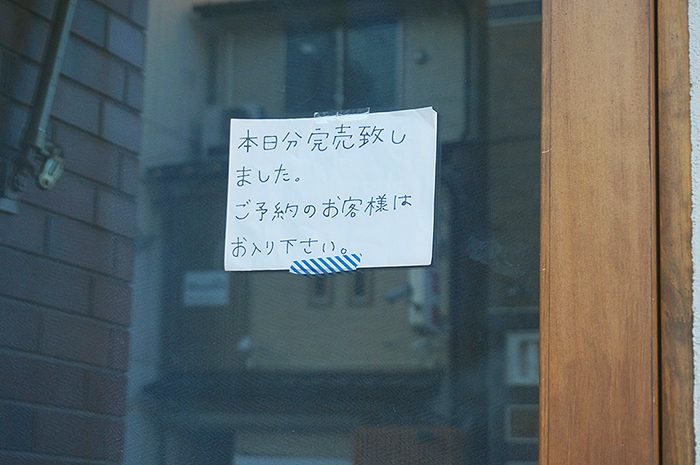 本日分完売致し
ました。
ご予約のお客様は
お入り下さい。